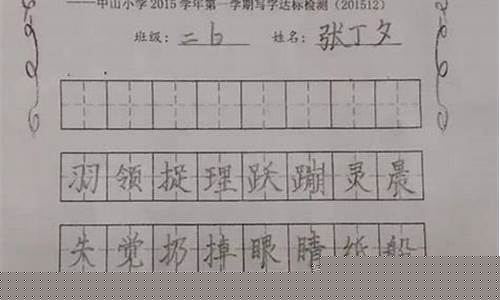 ——中山小学 2015 学年第一学期写字达标检测（201512）
班级：二6 姓名：张丁夕
羽领捉理跃蹦灵晨
失觉扔掉眼睛纸船